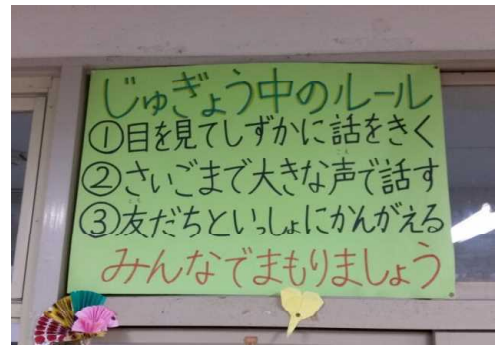 じゅぎょう中のルール
①目を見てしずかに話をきく
②さいごまで大きな声で話す
③友だちといっしょにかんがえる
みんなでまもりましょう